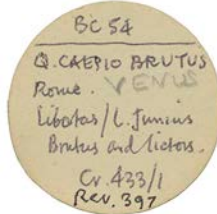 BC 54
Q. CAEPIO BRUTUS
Rome. VENUS
Libatas/L. Junius
Brutus and lictors.
Cr. 433/1
Rev. 397